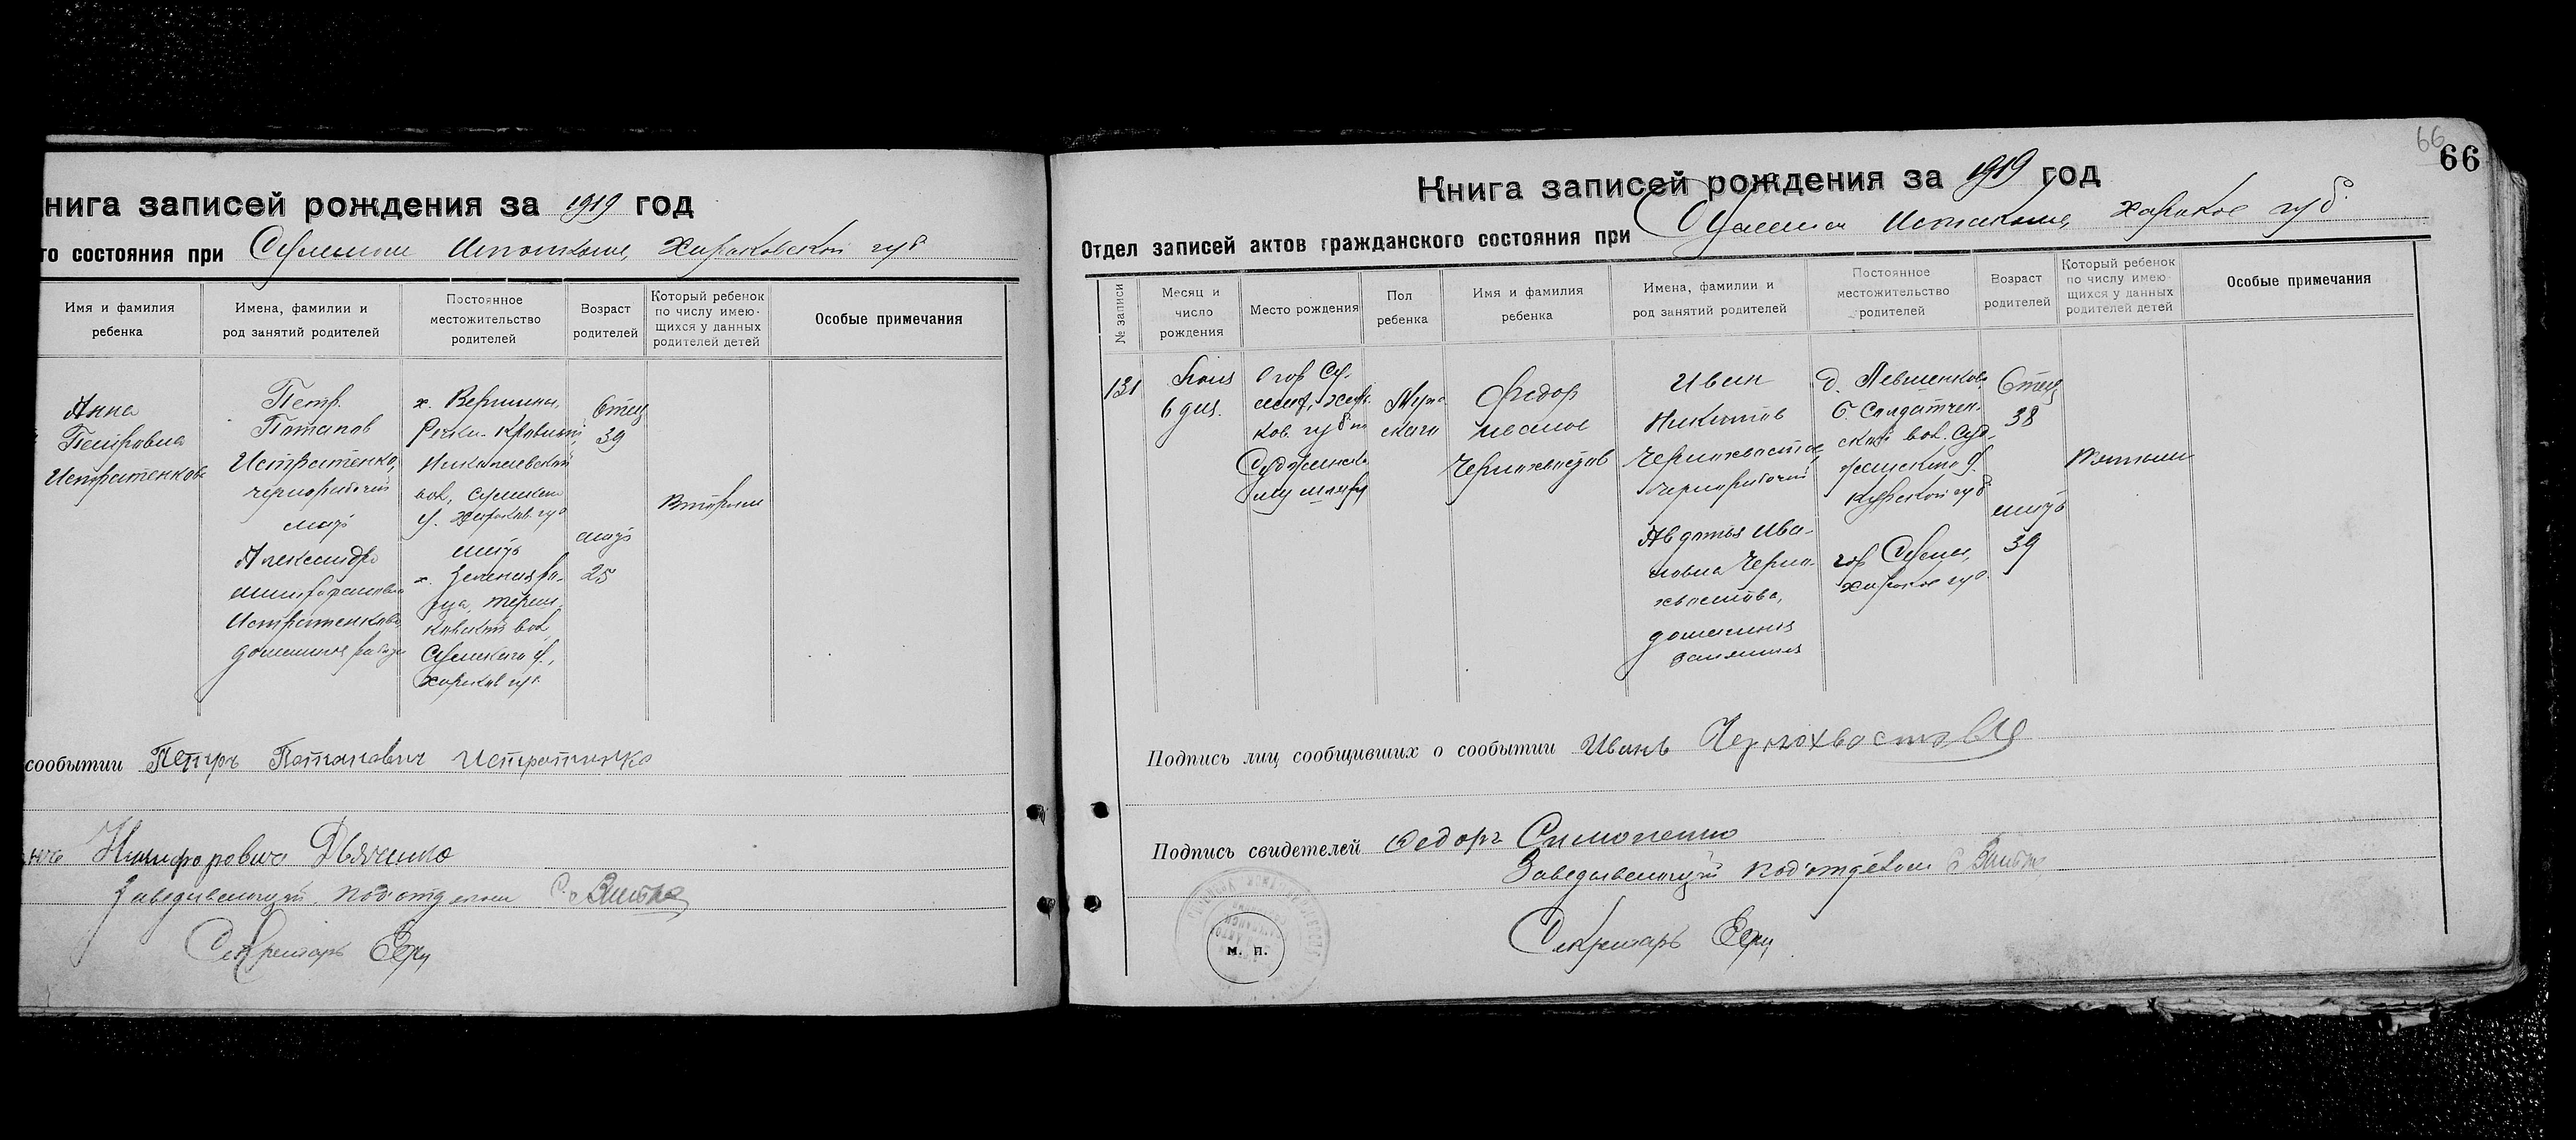 нига записей рождения за 1919 год
го состояния при Сумском Исполкоме, Харьковской губ
Имя и фамилия ребенка
Имена, фамилии и род занятий родителей
Постоянное местожительство родителей
Возраст родителей
Который ребенок по числу имею-щихся у данных родителей детей
Особые примечания
Анна
Петровна
Истратенкова
Петр
Потапов
Истратенко,
чернорабочий
мать
Александра
Истратенкова,
домашняя работа
х. Вершины,
Николаевской
вол, Сумского
у. Харьков. губ
мать
вол,
Сумского у.,
Харьков губ.
Отец
39
мать
25
Вторым
сообытии Петръ Потапович Истратенко
Никифоровича Дьяченко
Заведывающий подотделом
Секретарь
66
66
Книга записей рождения за 1919 год
Отдел записей актов гражданского состояния при Сумском Исполкоме, Харьков губ.
№ записи
Месяц и число рождения
Место рождения
Пол ребенка
Имя и фамилия ребенка
Имена, фамилии и род занятий родителей
Постоянное местожительство родителей
Возраст родителей
Который ребенок по числу имею-щихся у данных родителей детей
Особые примечания
131
6 дня.
гор Су-
мы, Харь-
ков. губ
Муж-
ского
Федор
Иванов
Чернохвостов
Иван
Никитов
Чернохвостов,
чернорабочий
Авдотья Ива-
новна Черно-
хвостова,
домашния
занятия
д. Левшенково
Б. Солдатчен-
ской вол. Суд-
жанского у.
Курской губ
гор Сумы,
Харьков губ.
Отец
38
мать
39
Пятым
Подпись лиц сообщивших о сообытии Иванъ Чернохвостовъ
Подпись свидетелей Федоръ Симоненко
Заведывающий подотделом
Секретарь
М. П.